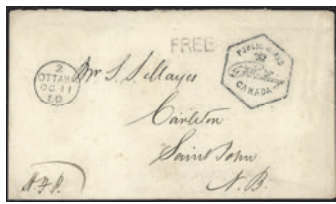 FREE
2
OTTAWA
OC 11
80
PUBLIC
CANADA
Mr S. S. Mayes
Carleton
Saint John
N. B.